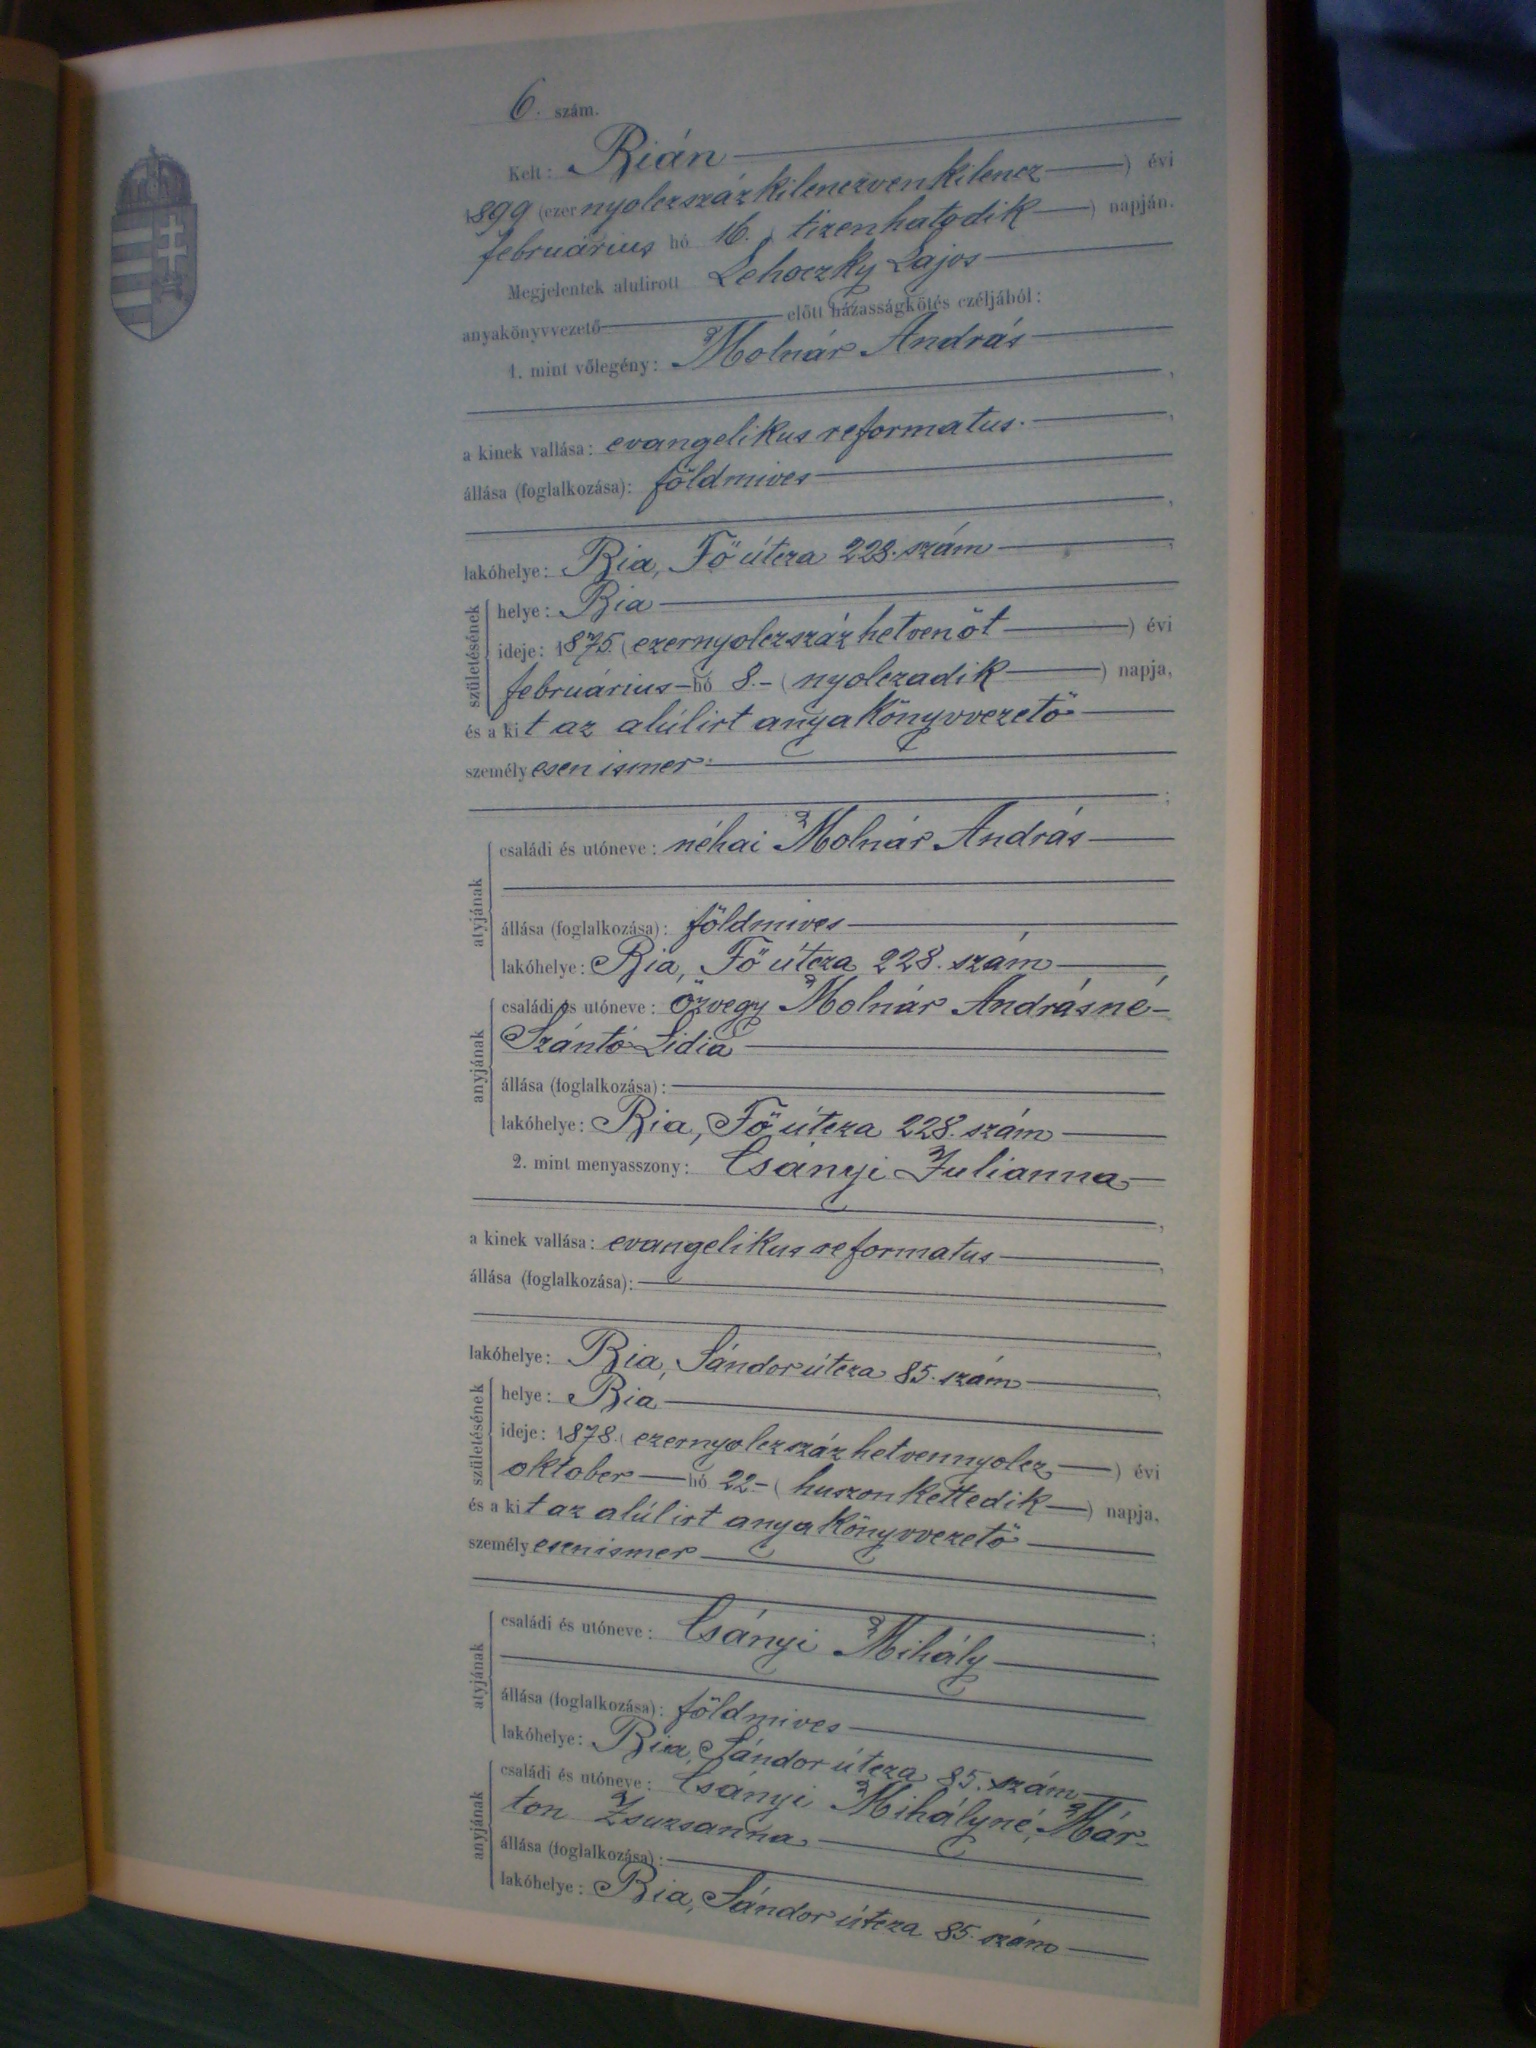 6. szám.
Kelt: Bián
1899 (ezernyolczszázkilenczvenkilencz) évi
februárius hó 16. tizenhatodik) napján.
Megjelentek alulirott Lehoczky Lajos
anyakönyvvezető előtt házasságkötés czéljából:
1. mint vőlegény: Molnár András
,
a kinek vallása: evangelikus reformatus. ,
állása (foglalkozása): földmives
,
lakóhelye: Bia, Fő útcza 228. szám ,
születésének
helye: Bia
ideje: 1875. (ezernyolczszáz hetvenöt) évi
februárius hó 8. (nyolczadik) napja,
és a kit az alúlirt anyakönyvvezető
személyesen ismer.
;
atyjának
családi és utóneve: néhai Molnár András
állása (foglalkozása): földmives
lakóhelye: Bia, Fő útcza 228. szám
anyjának
családi és utóneve: özvegy Molnár Andrásné
Szántó Lidia
állása (foglalkozása):
lakóhelye: Bia, Fő útcza 228. szám
2. mint menyasszony: Csányi Julianna
,
a kinek vallása: evangelikus reformatus ,
állása (foglalkozása):
,
lakóhelye: Bia, Sándor útcza 85. szám ,
születésének
helye: Bia
ideje: 1878. (ezernyolczszáz hetvennyolcz) évi
oktober hó 22 (huszonkettedik) napja,
és a kit az alúlirt anyakönyvvezető
személyesen ismer
;
atyjának
családi és utóneve: Csányi Mihály
állása (foglalkozása): földmives
lakóhelye: Bia, Sándor útcza 85. szám
anyjának
családi és utóneve: Csányi Mihályné, Már-
ton Zsuzsanna
állása (foglalkozása):
lakóhelye: Bia, Sándor útcza 85. szám